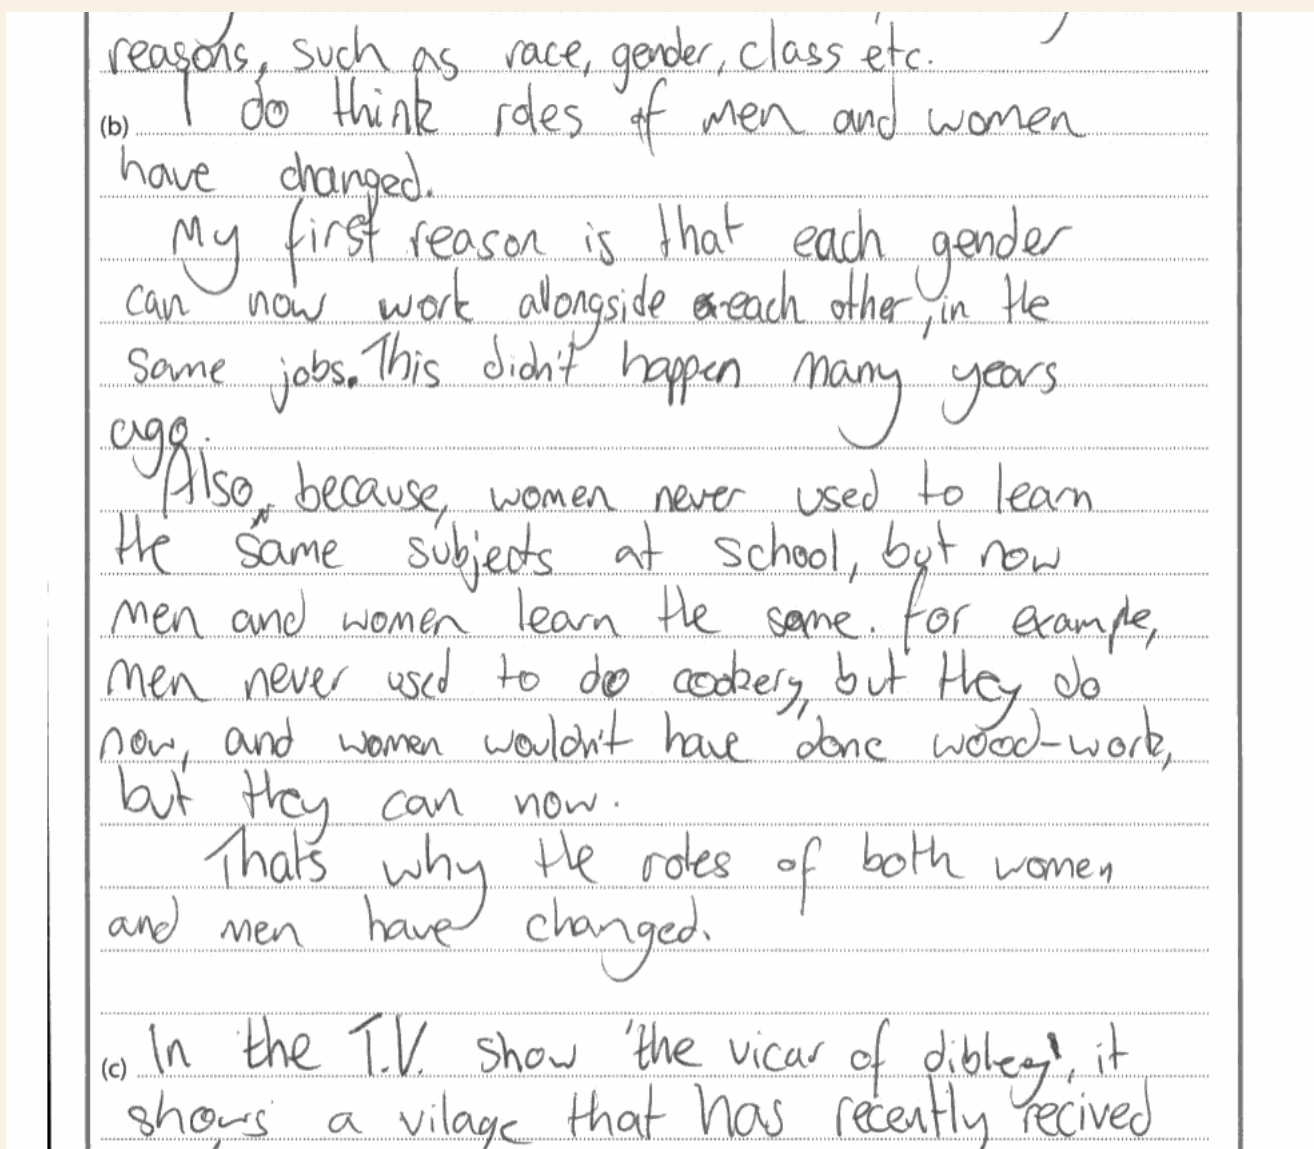 reasons, such as race, gender, class etc.
(b) I do think roles of men and women
have changed.
My first reason is that each gender
can now work alongside each other, in the
same jobs. This didn't happen many years
ago.
Also, because, women never used to learn
the same subjects at school, but now
men and women learn the same. for example,
men never used to do cookery, but they do
now, and women wouldn't have done wood-work,
but they can now.
That's why the roles of both women
and men have changed.
(c) In the T.V. show 'the vicar of dibley', it
shows a vilage that has recently recived